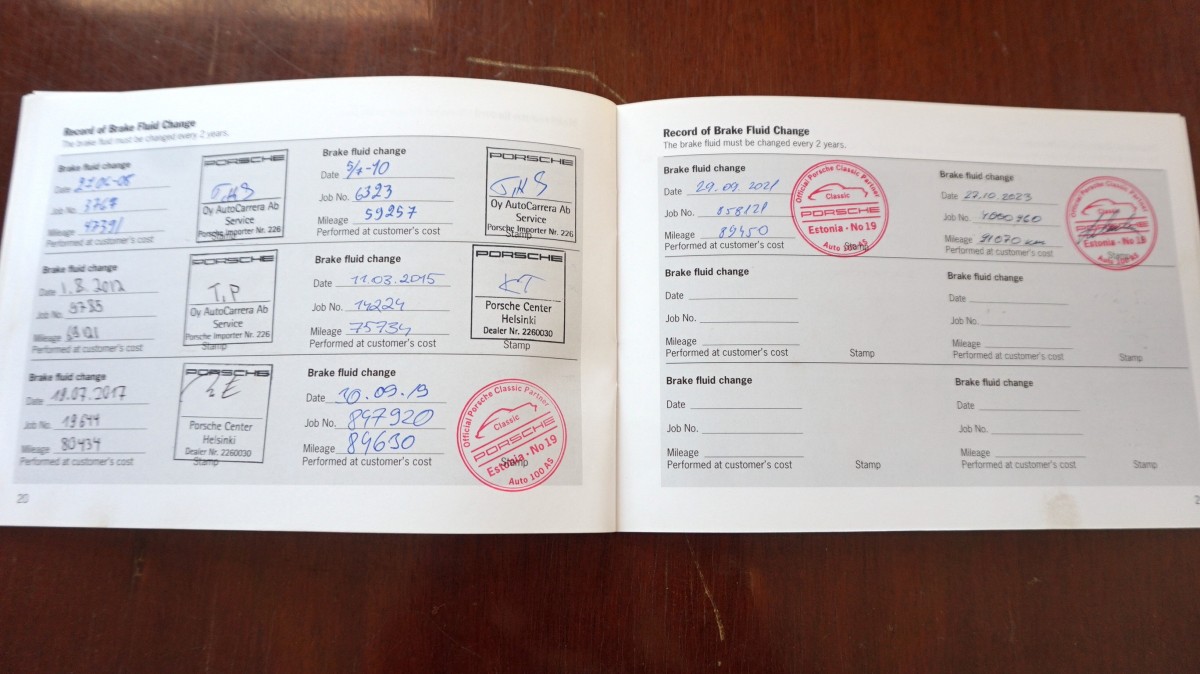 Record of Brake Fluid Change
The brake fluid must be changed every 2 years.
Brake fluid change
Date
Job No. 3767
Mileage 47391
Performed at customer's cost
PORSCHE
Oy AutoCarrera Ab
Service
Porsche Importer Nr. 226
Stamp
Brake fluid change
Date 5/2-10
Job No. 6323
Mileage 59257
Performed at customer's cost
PORSCHE
Oy AutoCarrera Ab
Service
Porsche Importer Nr. 226
Stamp
Brake fluid change
Date 1.8.2012
Job No. 9785
Mileage
Performed at customer's cost
PORSCHE
T.P
Oy AutoCarrera Ab
Service
Porsche Importer Nr. 226
Stamp
Brake fluid change
Date 11.03.2015
Job No. 14224
Mileage 75734
Performed at customer's cost
PORSCHE
KT
Porsche Center
Helsinki
Dealer Nr. 2260030
Stamp
Brake fluid change
Date 19.07.2017
Job No. 19644
Mileage 80434
Performed at customer's cost
PORSCHE
Porsche Center
Helsinki
Dealer Nr. 2260030
Stamp
Brake fluid change
Date 10.09.19
Job No. 847920
Mileage 84630
Performed at customer's cost
Official Porsche Classic Partner
Classic
PORSCHE
Estonia - No 19
Auto 100 AS
Stamp
20
Record of Brake Fluid Change
The brake fluid must be changed every 2 years.
Brake fluid change
Date 29.09 2021
Job No. 858121
Mileage 89450
Performed at customer's cost
Official Porsche Classic Partner
Classic
PORSCHE
Estonia - No 19
Auto 100 AS
Stamp
Brake fluid change
Date 27.10.2023
Job No. 1000960
Mileage 91070 km
Performed at customer's cost
Official Porsche Classic Partner
Estonia - No 19
Auto 100 AS
Stamp
Brake fluid change
Date
Job No.
Mileage
Performed at customer's cost
Stamp
Brake fluid change
Date
Job No.
Mileage
Performed at customer's cost
Stamp
Brake fluid change
Date
Job No.
Mileage
Performed at customer's cost
Stamp
Brake fluid change
Date
Job No.
Mileage
Performed at customer's cost
Stamp